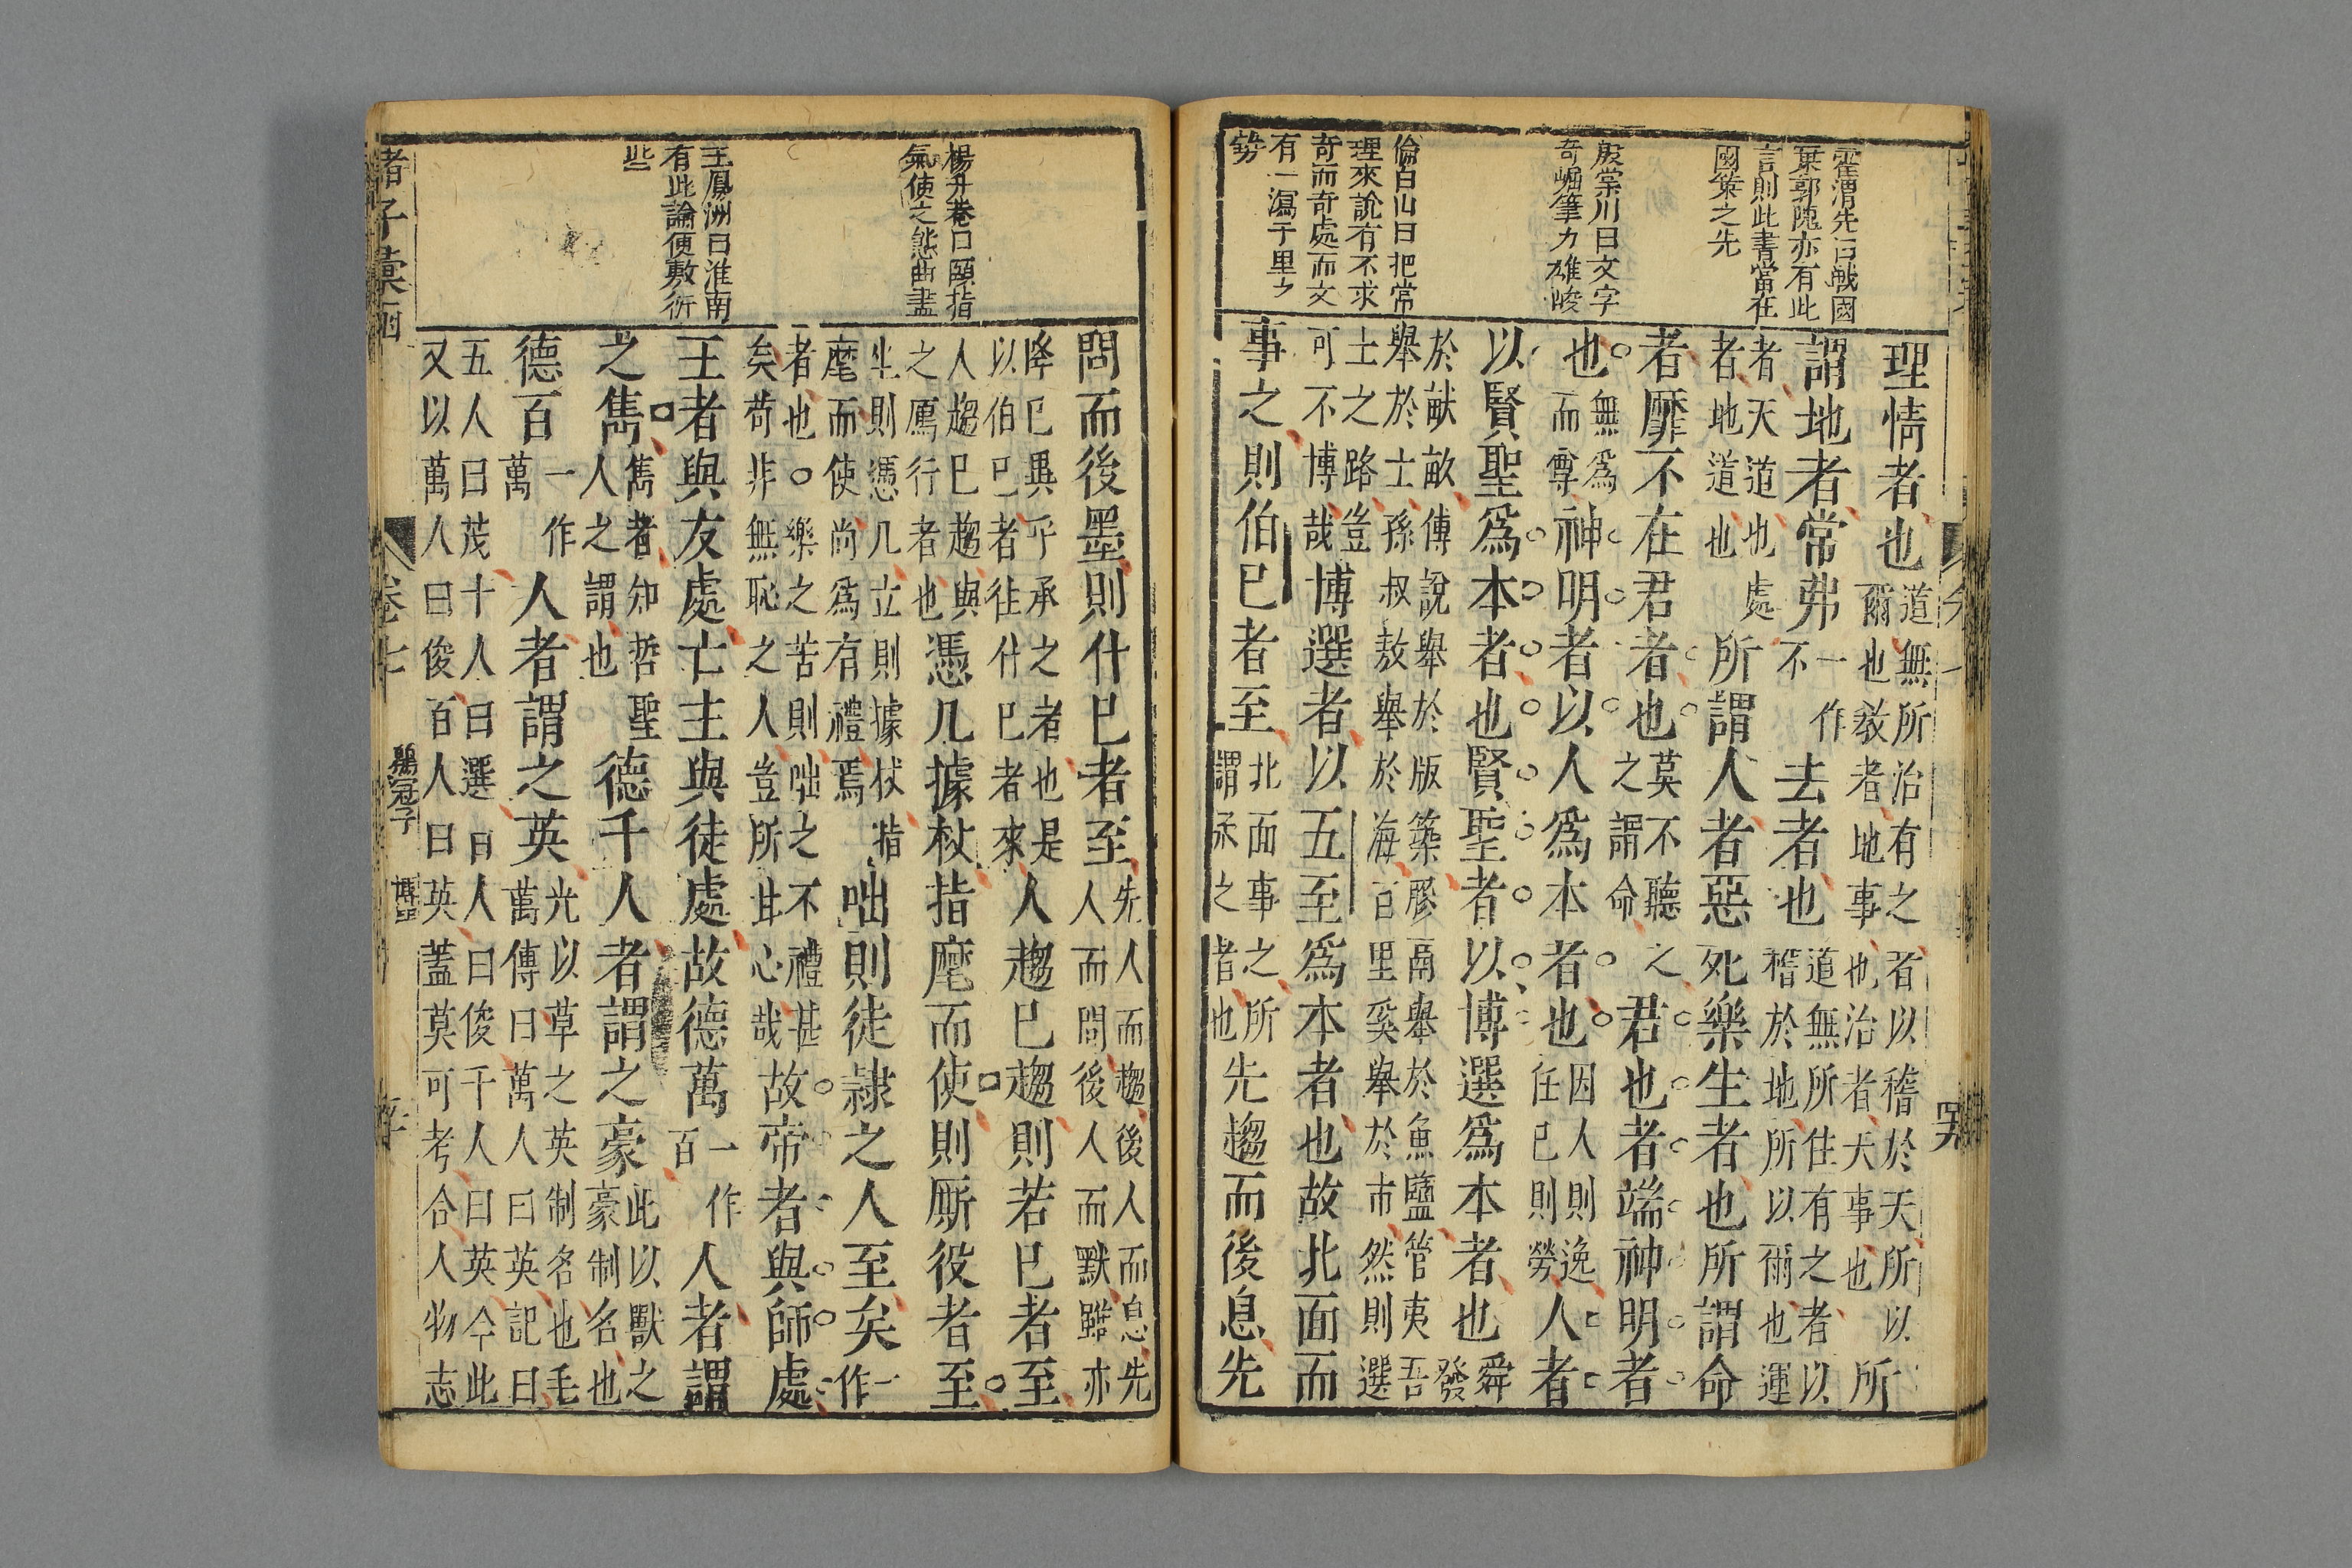 霍渭先曰戰國
策郭隗亦有此
言則此書當在
國策之先
殷棠川曰文字
奇崛筆力雄峻
倫白山曰把常
理來說有不求
奇而奇處而文
有一瀉千里之
勢
理情者也道無所治有之者以稽於天所以爾也敎者地事也治者天事也所
謂地者常弗一作不去者也道無所住有之者以稽於地所以爾也運
者天道也處者地道也所謂人者惡死樂生者也所謂命
者靡不在君者也莫不聽之之謂命君也者端神明者
也無爲而尊神明者以人爲本者也因人則逸任已則勞人者
以賢聖爲本者也賢聖者以博選爲本者也舜發
於畎畝傅說舉於版築膠鬲舉於魚鹽管夷吾舉於士孫叔敖舉於海百里奚舉於市然則選
士之路豈可不博哉博選者以五至爲本者也故北面而
事之則伯已者至北面事之所謂承之者也先趨而後息先
楊升菴曰頤指
氣使之態曲盡
王鳳洲曰淮南
有此論便敷衍
些
問而後墨則什已者至先人而趨後人而息先人而問後人而默雖亦
降已異乎承之者也是以伯已者往什已者來人趨已趨則若已者至
人趨已趨與之鴈行者也憑几據杖指麾而使則厮役者至
坐則憑几立則據杖指麾而使尚爲有禮焉咄則徒隸之人至矣一作
者也○樂之苦則咄之不禮甚矣苟非無恥之人豈所甘心哉故帝者與師處
王者與友處亡主與徒處故德萬一作百人者謂
之雋雋者知哲聖人之謂也德千人者謂之豪此以獸之豪制名也
德百一作萬人者謂之英光以草之英制名也毛萬傳曰萬人曰英記曰
五人曰茂十人曰選百人曰俊千人曰英今此又以萬人曰俊百人曰英蓋莫可考合人物志
諸子彙函
卷七
鶡冠子